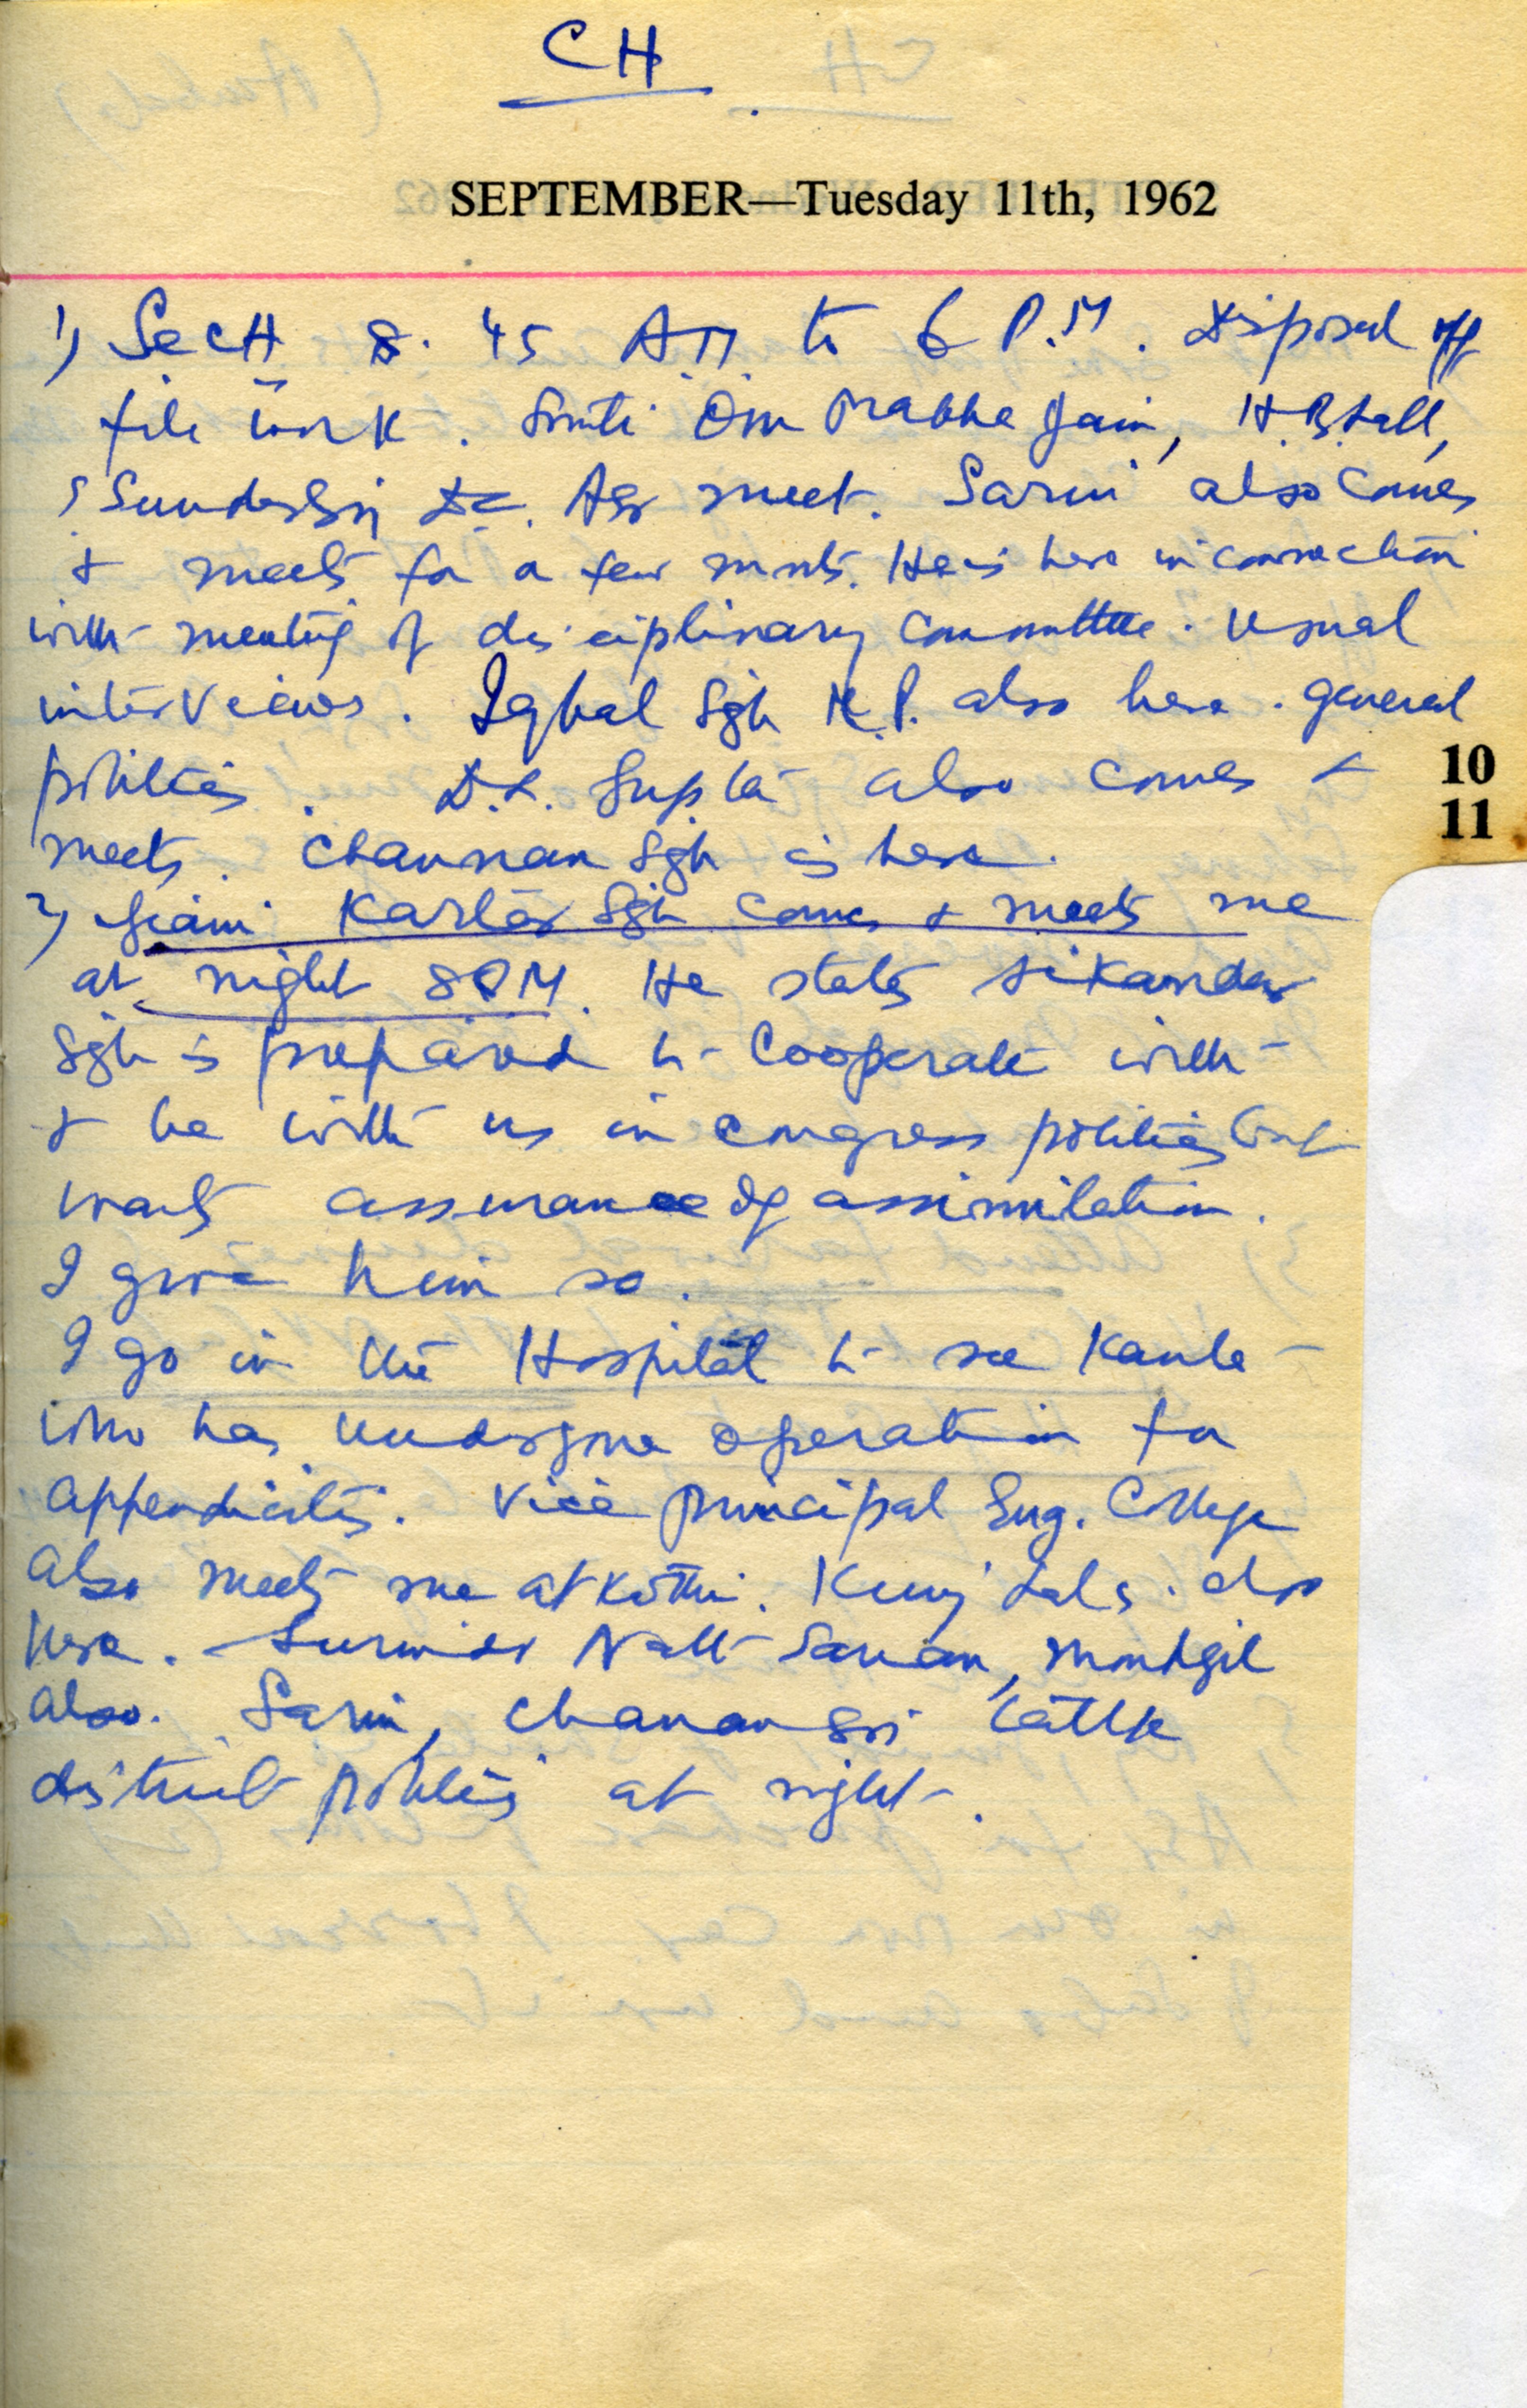 CH
SEPTEMBER—Tuesday 11th, 1962
1) SectT 8.45 AM to 6 P.M. Disposal off
file work. Smti Om Prabha Jain, H.B. Lall,
Sunder Sgh DC. Asr meet. Sarin also comes
+ meets for a few mnts. He is here in connection
with meeting of disciplinary committee. Usual
interviews. Iqbal Sgh M.P. also here. general
politics. D.D. Gupta also comes +
meets. Channan Sgh is here.
10
11
2) Giani Kartar Sgh comes + meets me
at night 8 PM. He states Sikandar
Sgh is prepared to cooperate with
+ be with us in congress politics but
wants assurance of assimilation.
I give him so.
I go in the Hospital to see Kanta
who has undergone operation for
appendicitis. Vice Principal Eng. College
also meets me at Kothi. Kunj Lal is also
here. Surinder Nath Saran, Moudgil
also. Sarin, Chanan Sgh talk
district politics at night.